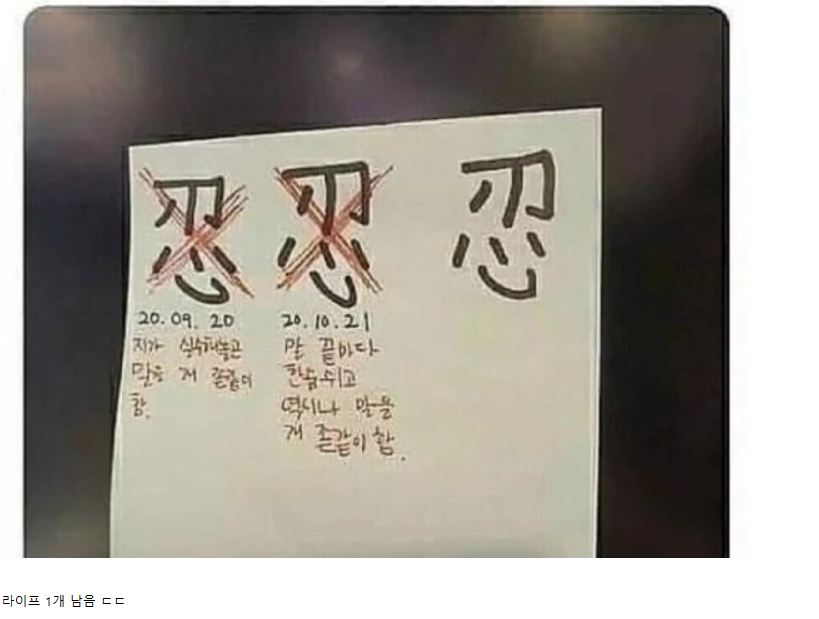 忍 忍 忍
20.09.20
지가 실수해놓곤
말을 개 존같이
함.
20.10.21
말 끝마다
한숨쉬고
역시나 말을
개 존같이 함.
라이프 1개 남음 ㄷㄷ